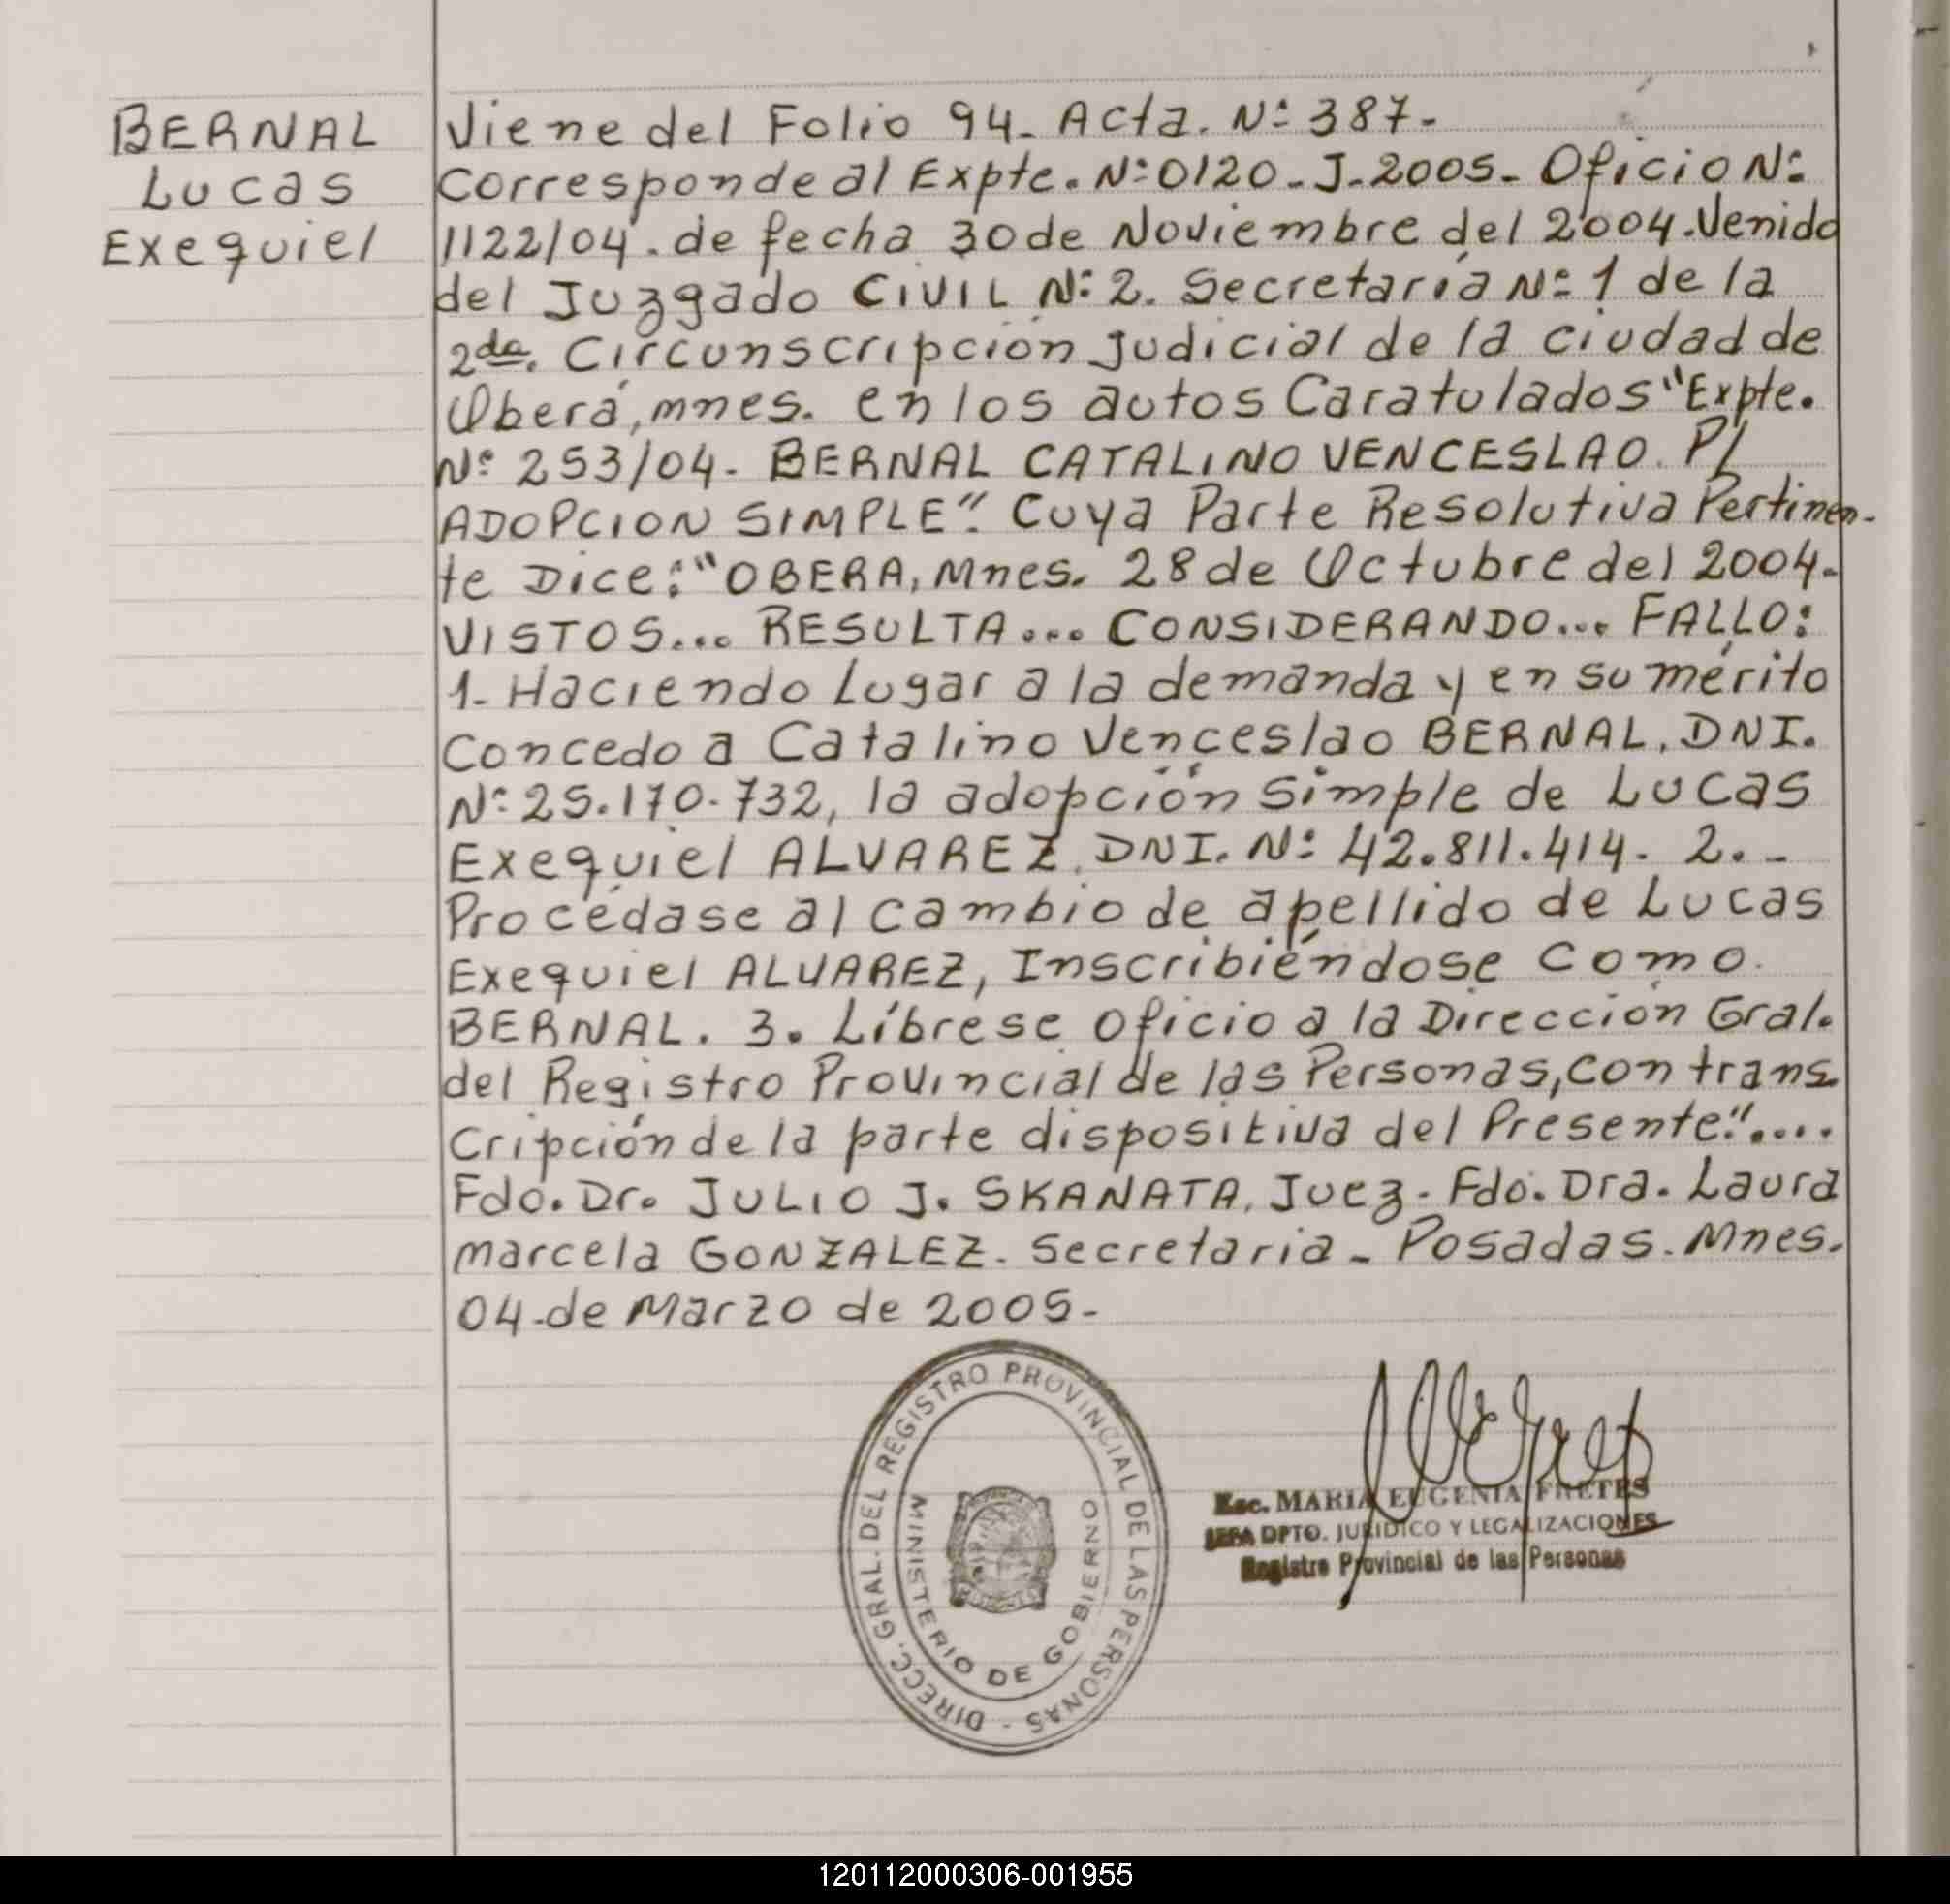 BERNAL
Lucas
Exequiel
Viene del Folio 94- Acta. Nº 387-
Corresponde al Expte. Nº 0120-J-2005- Oficio Nº
1122/04. de fecha 30 de Noviembre del 2004. Venido
del Juzgado CIVIL Nº 2. Secretaría Nº 1 de la
2da. Circunscripción Judicial de la ciudad de
Oberá, mnes. en los autos Caratulados "Expte.
Nº 253/04- BERNAL CATALINO VENCESLAO P/
ADOPCION SIMPLE". Cuya Parte Resolutiva Pertinen-
te Dice: "OBERA, Mnes. 28 de Octubre del 2004-
VISTOS... RESULTA... CONSIDERANDO... FALLO:
1- Haciendo Lugar a la demanda y en su mérito
Concedo a Catalino Venceslao BERNAL, DNI.
Nº 25.170.732, la adopción simple de Lucas
Exequiel ALVAREZ, DNI. Nº 42.811.414. 2.-
Procédase al cambio de apellido de Lucas
Exequiel ALVAREZ, Inscribiéndose como
BERNAL. 3. Líbrese oficio a la Dirección Gral.
del Registro Provincial de las Personas, con trans-
cripción de la parte dispositiva del Presente."....
Fdo. Dr. JULIO J. SKANATA, Juez- Fdo. Dra. Laura
marcela GONZALEZ- Secretaria- Posadas. Mnes.
04-de Marzo de 2005-
DIRECC. GRAL. DEL REGISTRO PROVINCIAL DE LAS PERSONAS -
MINISTERIO DE GOBIERNO
Esc. MARIA EUGENIA FRETES
JEFA DPTO. JURIDICO Y LEGALIZACIONES
Registro Provincial de las Personas
120112000306-001955